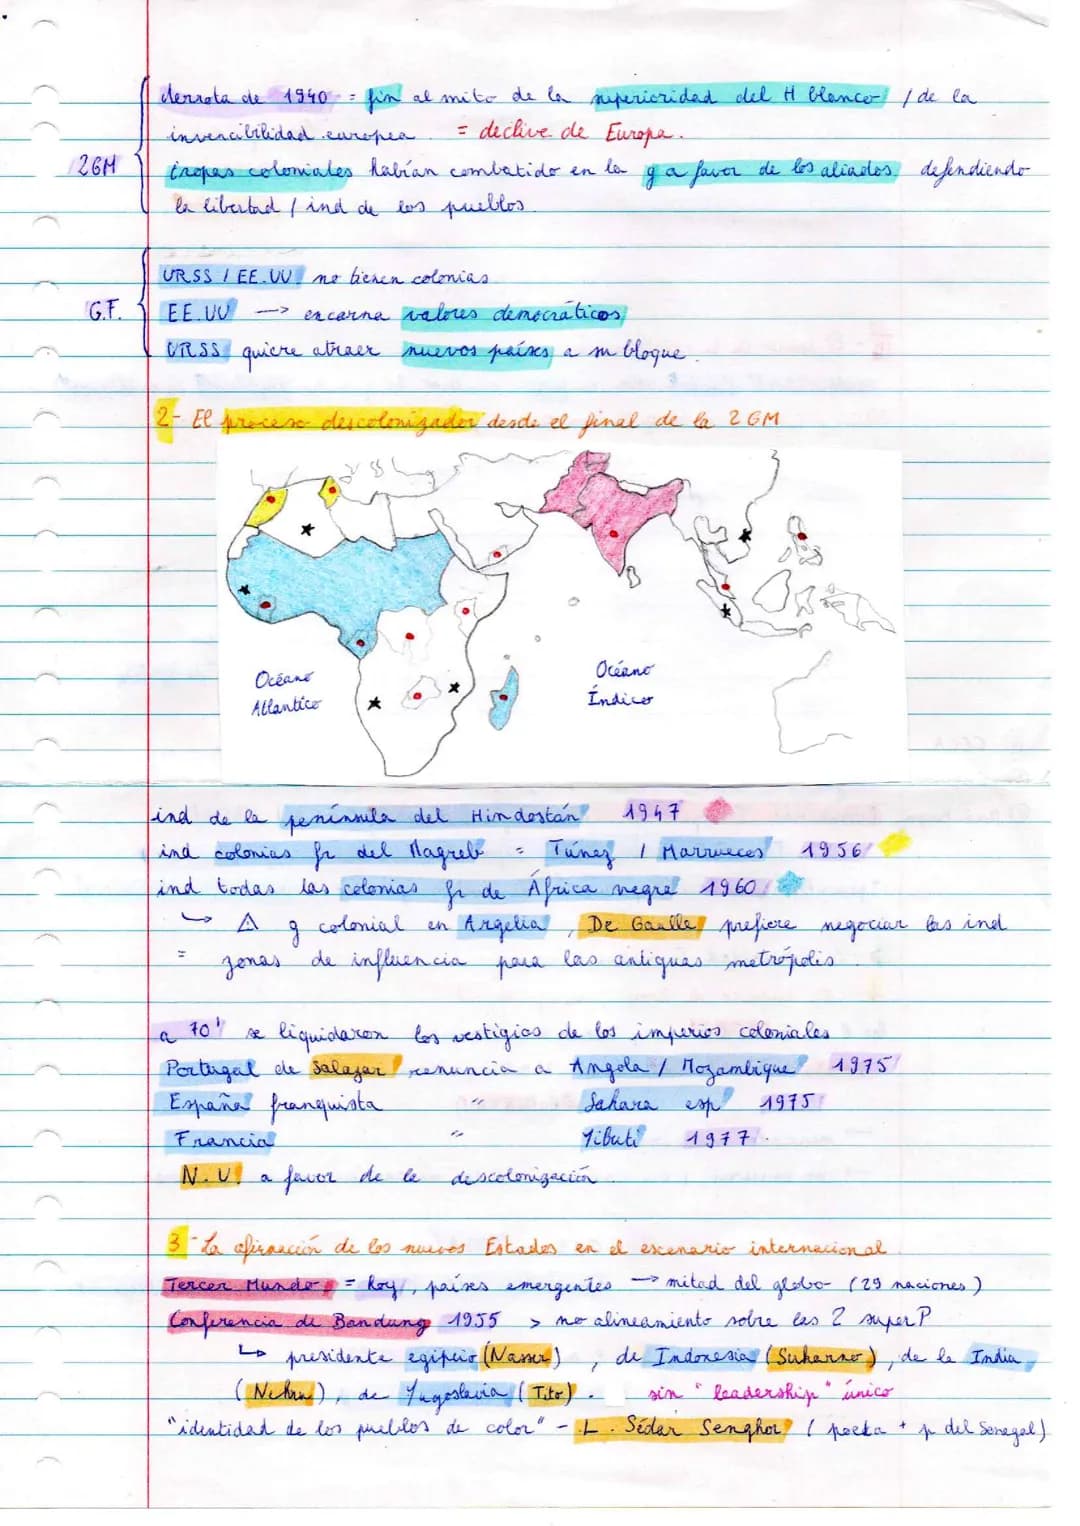 derrota de 1940 = fin al mito de la superioridad del H blanco / de la
invencibilidad europea. = declive de Europa.
2GM
tropas coloniales habían combatido en la g a favor de los aliados, defendiendo
la libertad / ind de los pueblos.
URSS / EE.UU. no tienen colonias.
G.F.
EE.UU —> encarna valores democráticos,
URSS quiere atraer nuevos países a su bloque.
2- El proceso descolonizador desde el final de la 2GM
Océano
Atlantico
Océano
Índico
ind de la península del Hindostán 1947
ind colonias fr del Magreb = Túnez / Marruecos 1956
ind todas las colonias fr de África negra 1960
↳ ⚠ g colonial en Argelia, De Gaulle prefiere negociar las ind
= zonas de influencia para las antiguas metrópolis.
a 70' se liquidaron los vestigios de los imperios coloniales
Portugal de Salazar renuncia a Angola / Mozambique 1975
España franquista " Sahara esp 1975
Francia " Yibuti 1977.
N.U. a favor de la descolonización.
3- La afirmación de los nuevos Estados en el escenario internacional
Tercer Mundo = hoy, países emergentes —> mitad del globo (29 naciones)
Conferencia de Bandung 1955 > no alineamiento sobre las 2 superP
↳ presidente egipcio (Nasser), de Indonesia (Suharno), de la India,
(Nehru), de Yugoslavia (Tito). sin "leadership" único
"identidad de los pueblos de color" - L. Sédar Senghor (poeta + p del Senegal)